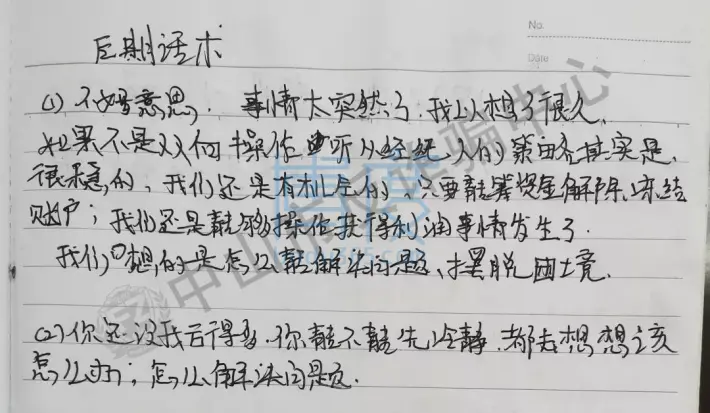 No.
Date
后期话术
(1) 不好意思. 事情太突然了,我以想了很久,
如果不是双向操作 听从经纪人的策略其实是,
很稳的,我们还是有机会的,只要能筹奖金解除冻结
账户;我们还是能够操作获得利润事情发生了.
我们 想的是怎么能解决问题、摆脱困境.
(2)你还没我亏得多.你能不能先冷静.都去想想该
怎么办;怎么解决问题.
中山 反诈骗中心